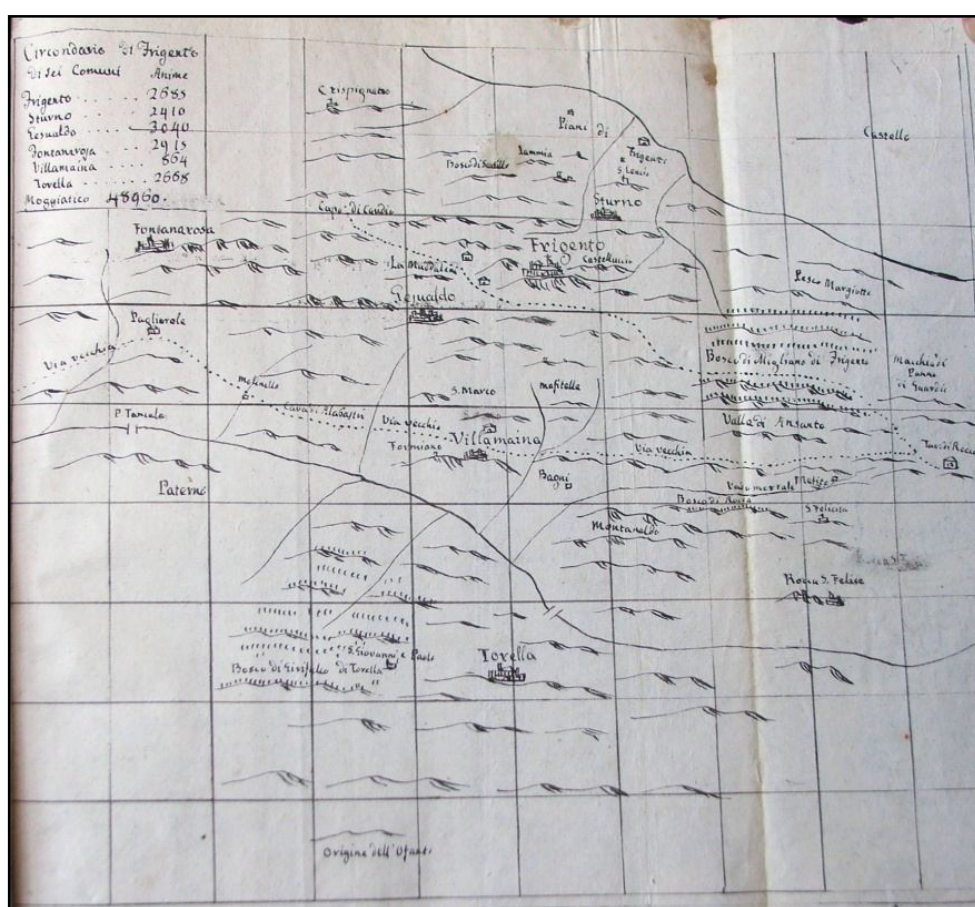 Circondario di Frigento
di sei Comuni Anime
Frigento 2685
Sturno 2410
Gesualdo 3040
Fontanarosa 2915
Villamaina 864
Torella 2668
Moggiatico 48960.
Crispignano
Piani di
Castello
Lammia
Frigenti
e
S. Lucia
Sturno
Capo di Caudio
Fontanarosa
Frigento
Castelluccio
La Maddalena
Pesco Margiotta
Gesualdo
Paglierole
Via vecchia
Bosco di Migliano di Frigento
Macchia di
Panno
di Guardia
molinello
S. Marco
mefitelle
P. Taniele
Cava di Alabastri
Via vecchia
Valle di Ansanto
Villamaina
Formiano
Via vecchia
Paterno
Bagni
Vado mortale
Mefite
Montanaldo
S. Felicita
Rocca S. Felice
S. Giovanni e Paolo
Torella
Bosco di Girifalco di Torella
Origine dell' Ofanto